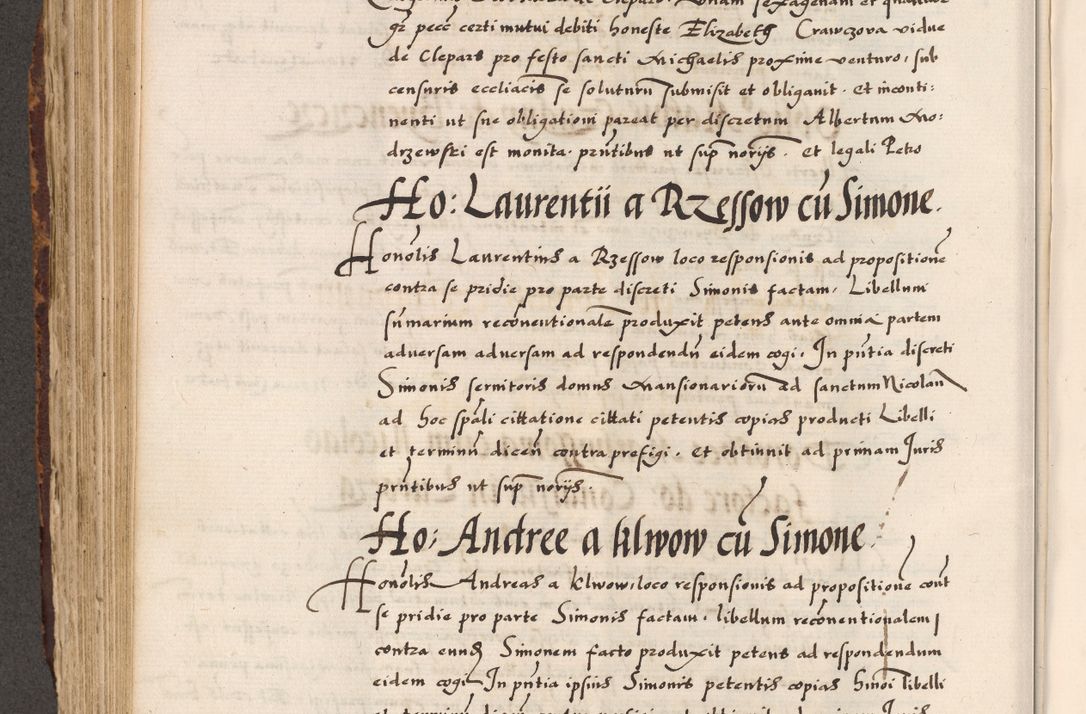 gr pecc certi mutui debiti honeste Elizabeth Crawczova vidue
de Clepars pro festo sancti Michaelis proxime venturo, sub
censuris eccliacis se soluturu submisit et obligavit. Et inconti=
nenti ut sue obligationi pareat per discretum Albertum Mo=
drzewski est monita. pntibus ut sup norijs. Et legali Petro
Ho: Laurentii a Rzessow cu Simone.
Honolis Laurentius a Rzessow loco responsionis ad propositione
contra se pridie pro parte discreti Simonis factam, Libellum
sumarium reconventionale produxit petens ante omnia partem
adversam adversam ad respondendu eidem cogi. In pntia discreti
Simonis servitoris domus Mansionarioru ad sanctum Nicolau
ad hoc spali cittatione cittati petentis copias producti Libelli
et terminu dicen contra prefigi. Et obtinuit ad primam Juris
pntibus ut sup norijs.
Ho: Andree a klwow cu Simone
Honolis Andreas a klwow, loco responsionis ad propositione cont
se pridie pro parte Simonis factam. libellum reconventionalem
contra eund Simonem facto produxit petens ad respondendum
eidem cogi. In pntia ipsius Simonis petentis copias hmoi libelli